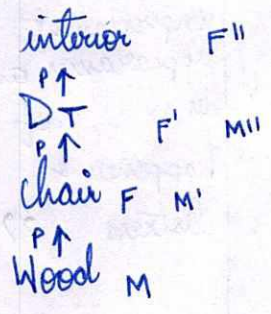 interior F"
P↑
DT F' M"
P↑
chair F M'
P↑
Wood M